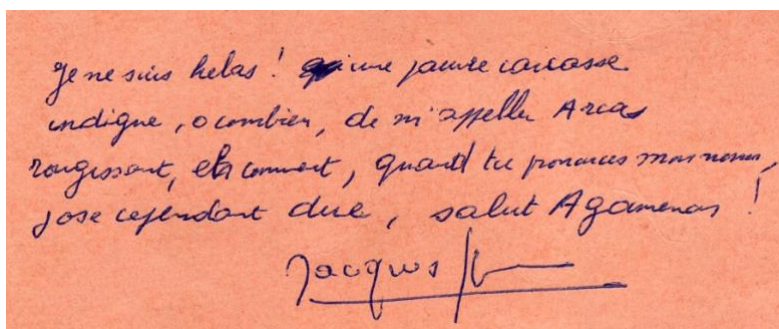 Je ne suis helas ! qu'une pauvre carcasse
indigne, o combien, de m'appeller Arcas
rougissant, et comment, quand tu prononces mon nom,
j'ose cependant dire, salut Agamenon !
Jacques